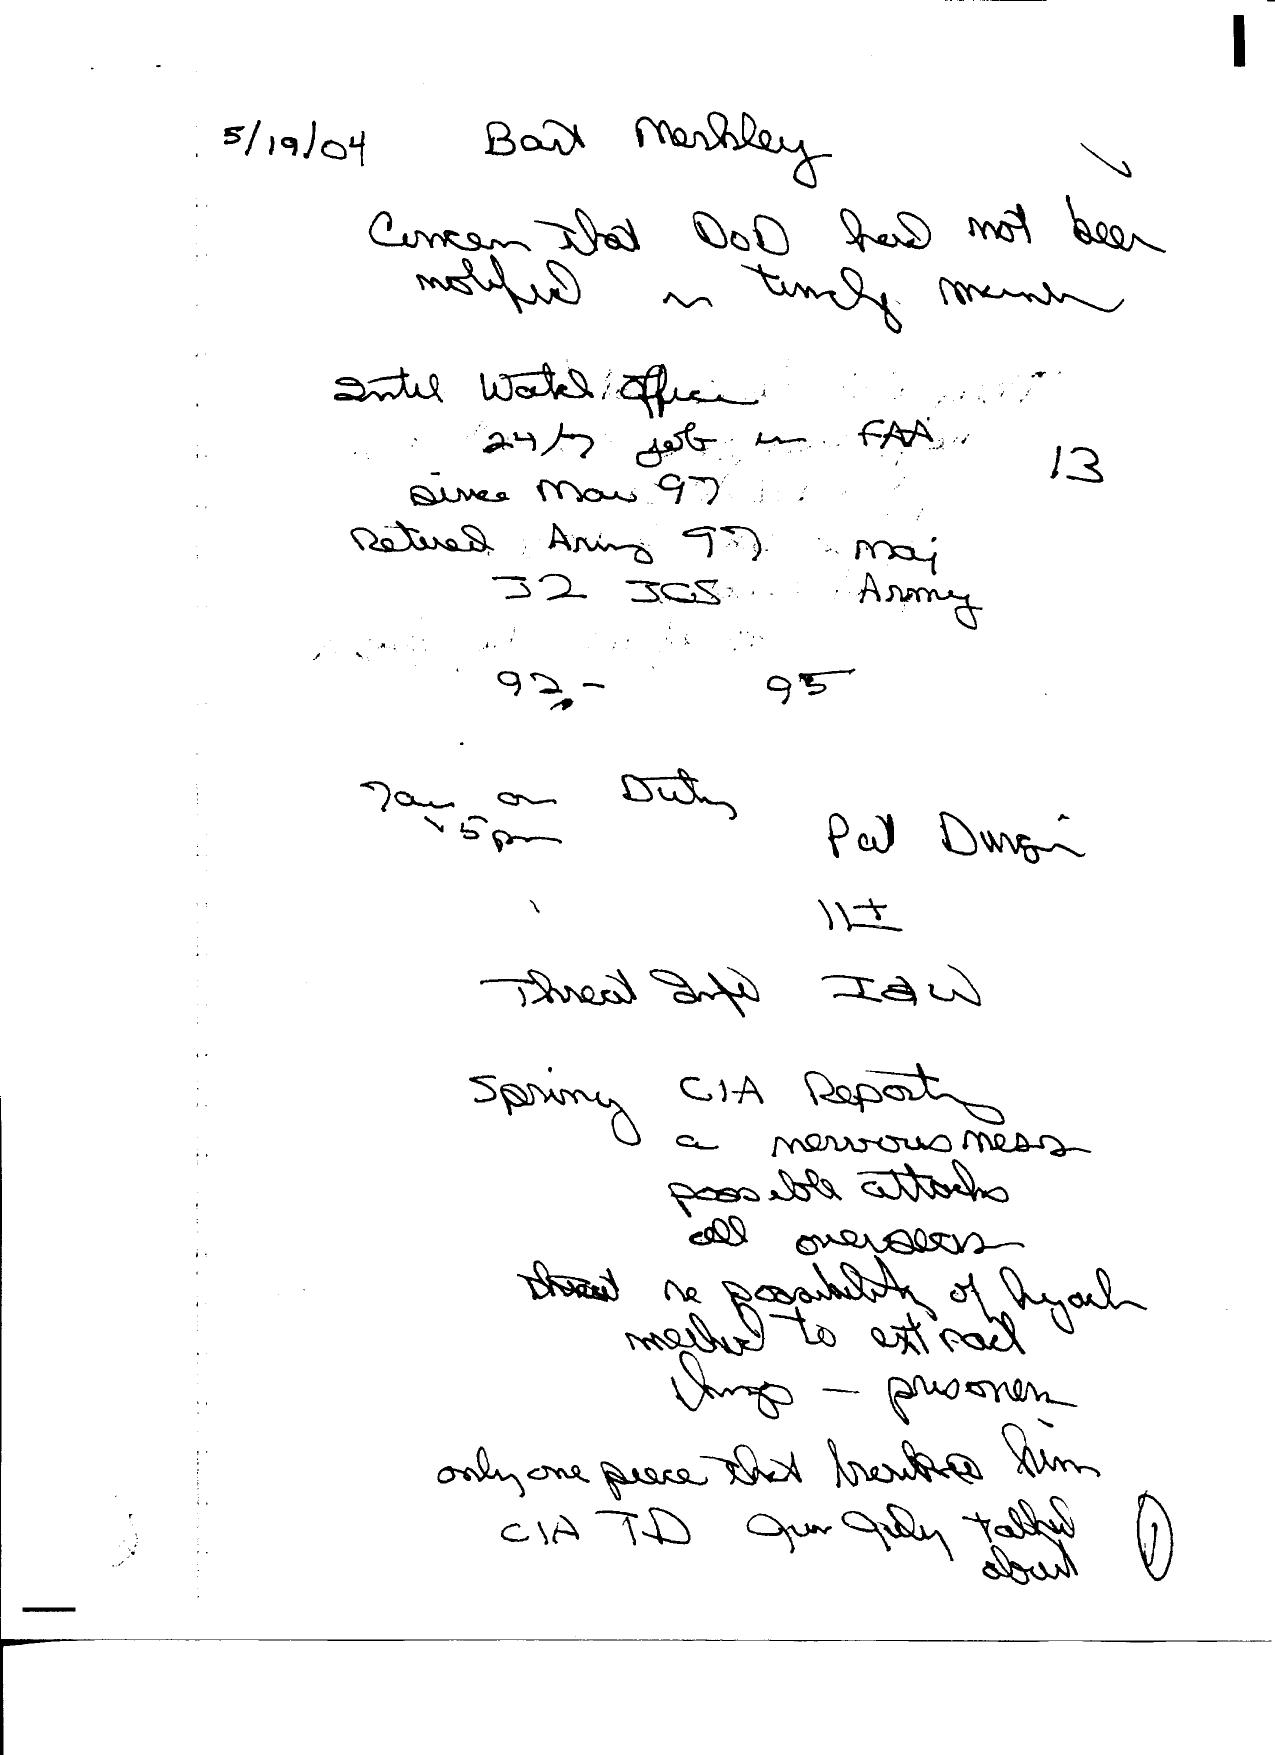 5/19/04 Bart Merkley
Concern that DoD had not been
notified in timely manner
Intel Watch Officer
24/7 job in FAA
13
since Mar 97
Retired Army 97 Maj
J2 JCS Army
92 - 95
7am on Duty
5pm
Pat Durgin
11±
Threat Info I&W
Spring CIA Reporting
a nervousness
possible attacks
all overseas
threat re possibility of hijack
method to extract
things - prisoners
only one piece that him
CIA TD Jun July talked
about
1